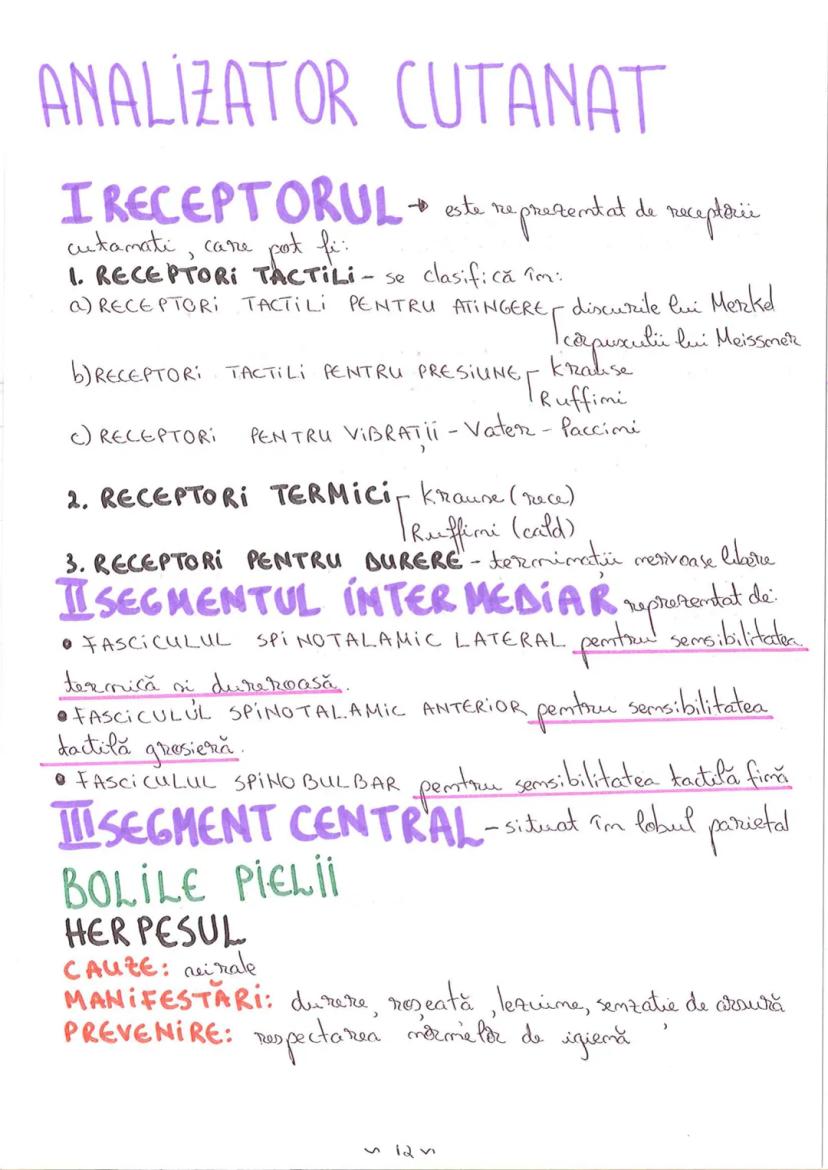 ANALIZATOR CUTANAT
I RECEPTORUL → este reprezentat de receptorii
cutanati, care pot fi:
1. RECEPTORI TACTILI - se clasifică în:
a) RECEPTORI TACTILI PENTRU ATINGERE discurile lui Merkel
corpusculii lui Meissner
b) RECEPTORI TACTILI PENTRU PRESIUNE Krause
Ruffini
c) RECEPTORI PENTRU VIBRAȚII - Vater - Paccini
2. RECEPTORI TERMICI Krause (rece)
Ruffini (cald)
3. RECEPTORI PENTRU DURERE - terminații nervoase libere
II SEGMENTUL INTERMEDIAR reprezentat de:
• FASCICULUL SPINOTALAMIC LATERAL pentru sensibilitatea
termică si dureroasă.
• FASCICULUL SPINOTALAMIC ANTERIOR pentru sensibilitatea
tactilă grosieră.
• FASCICULUL SPINOBULBAR pentru sensibilitatea tactilă fină
III SEGMENT CENTRAL - situat în lobul parietal
BOLILE PIELII
HERPESUL
CAUZE: virale
MANIFESTĂRI: durere, roșeată, leziune, senzatie de arsură
PREVENIRE: respectarea normelor de igienă
~ 12 ~